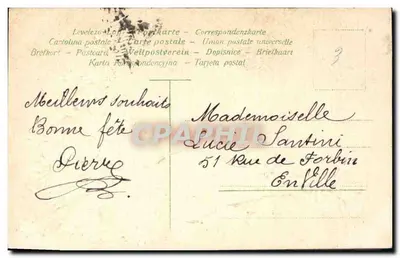 Levelező-Lap — Postkarte — Correspondenzkarte
Cartolina postale — Carte postale — Union postale universelle
Brefkort — Postcard — Weltpostverein — Dopisnice — Briefkaart
Karta Korespondencyjna — Tarjeta postal
3
Meilleurs souhaits
Bonne fête
Pierre
Mademoiselle
Lucie Santini
51 Rue de Forbin
EnVille
CPAPHIL